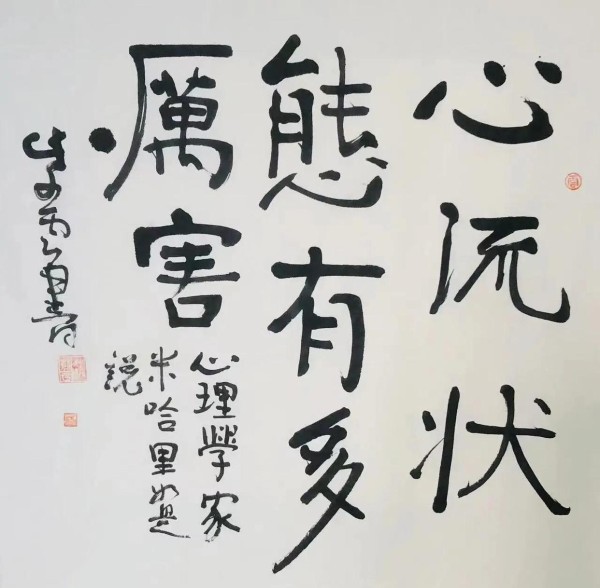 心流状
態有多
厲害
心理學家
米哈里如是
說